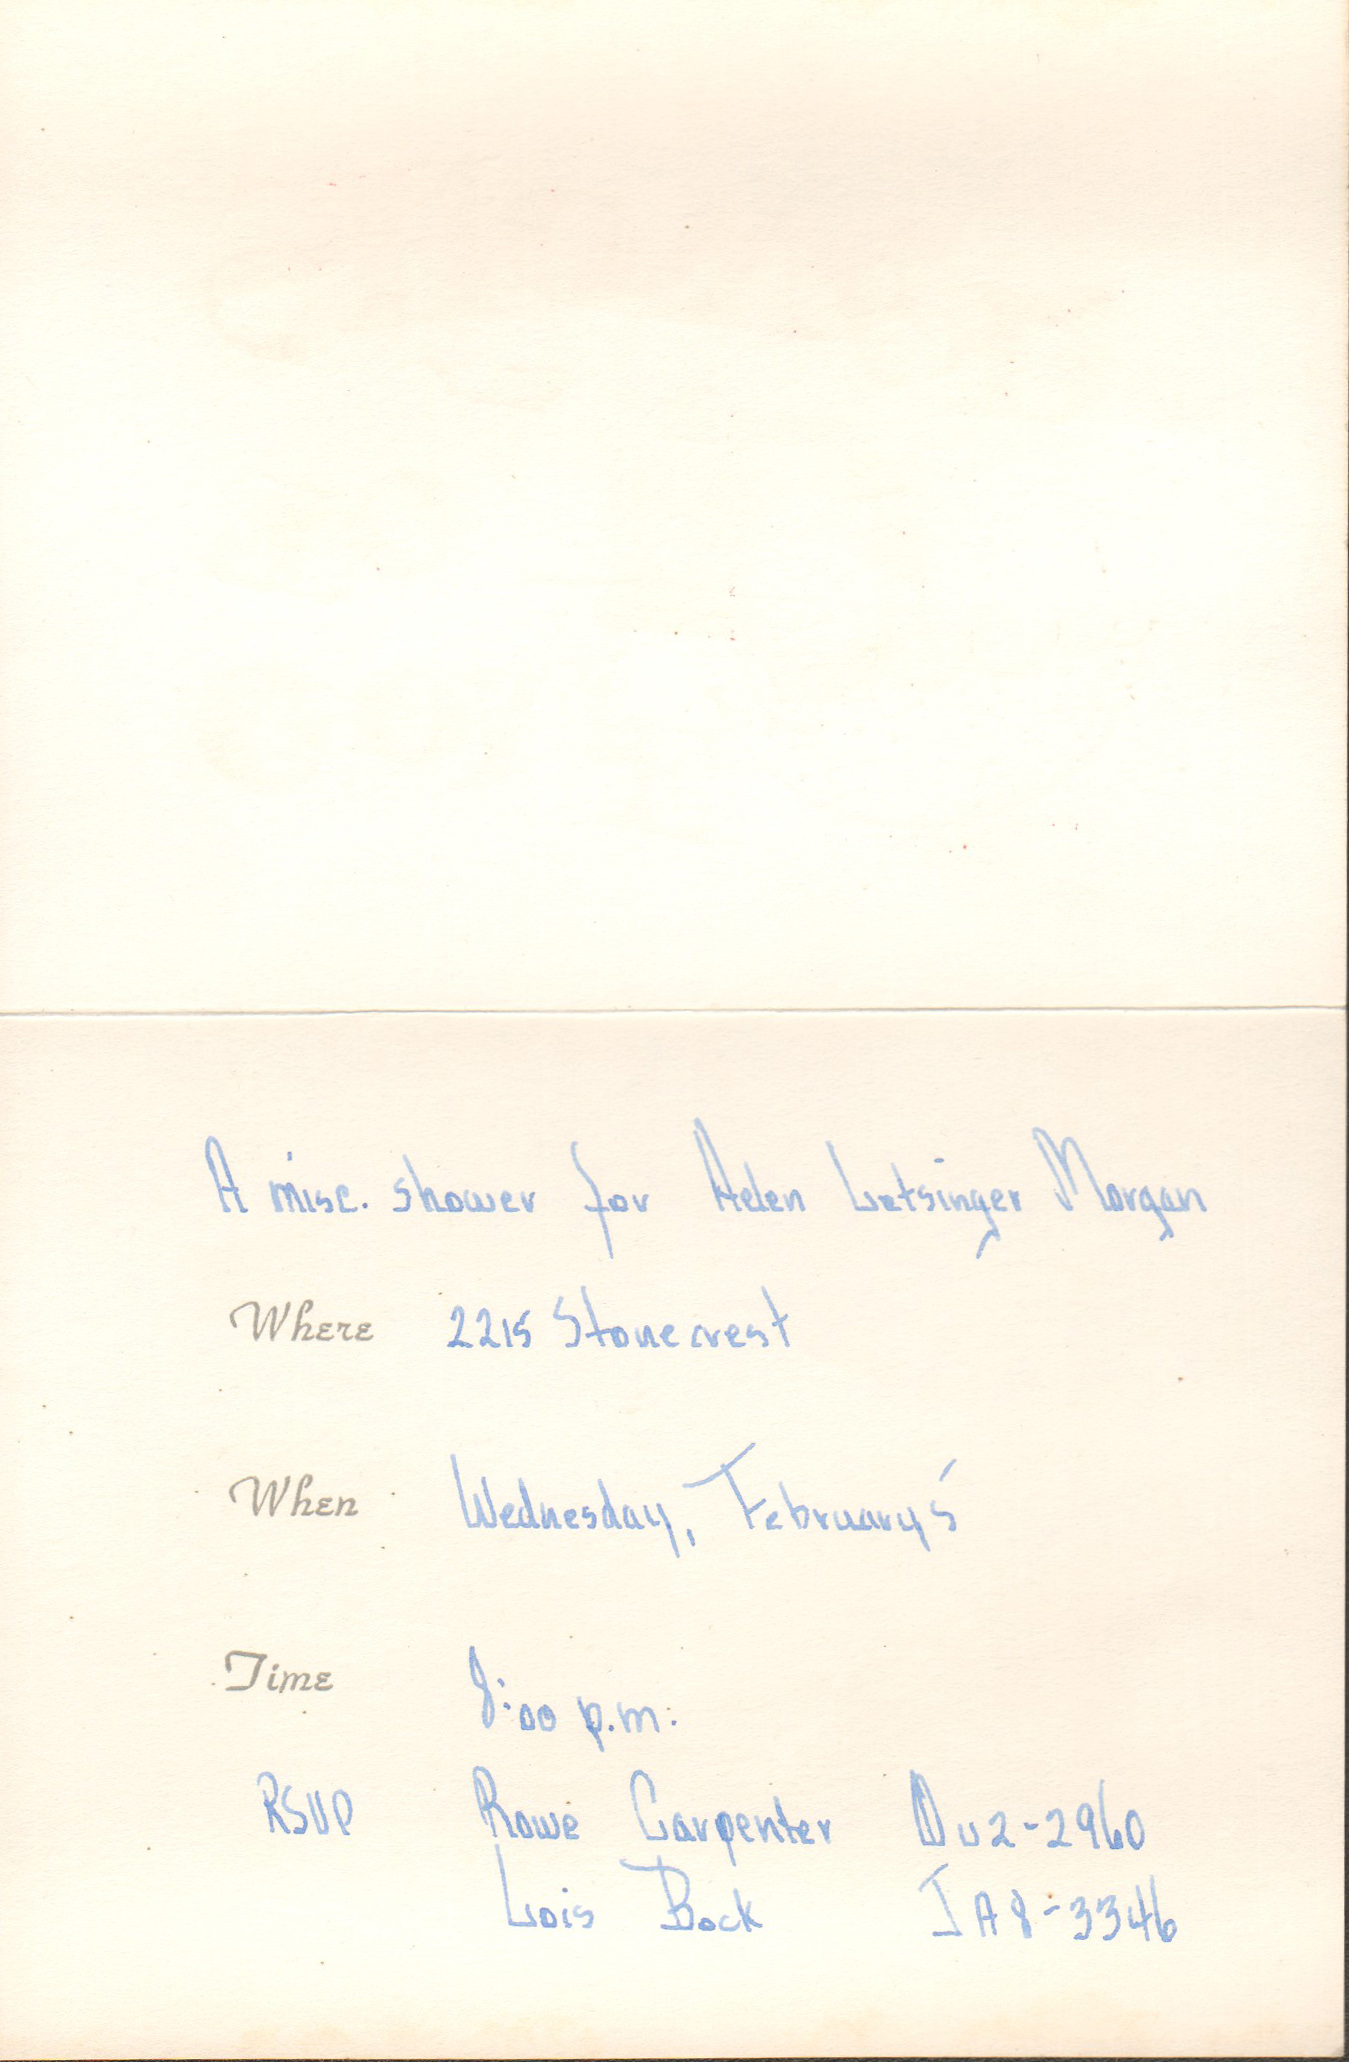 A misc. shower for Helen Letsinger Morgan
Where 2215 Stonecrest
When Wednesday, February 5
Time 8:00 p.m.
RSVP Rowe Carpenter Du2-2960
Lois Bock JA8-3346